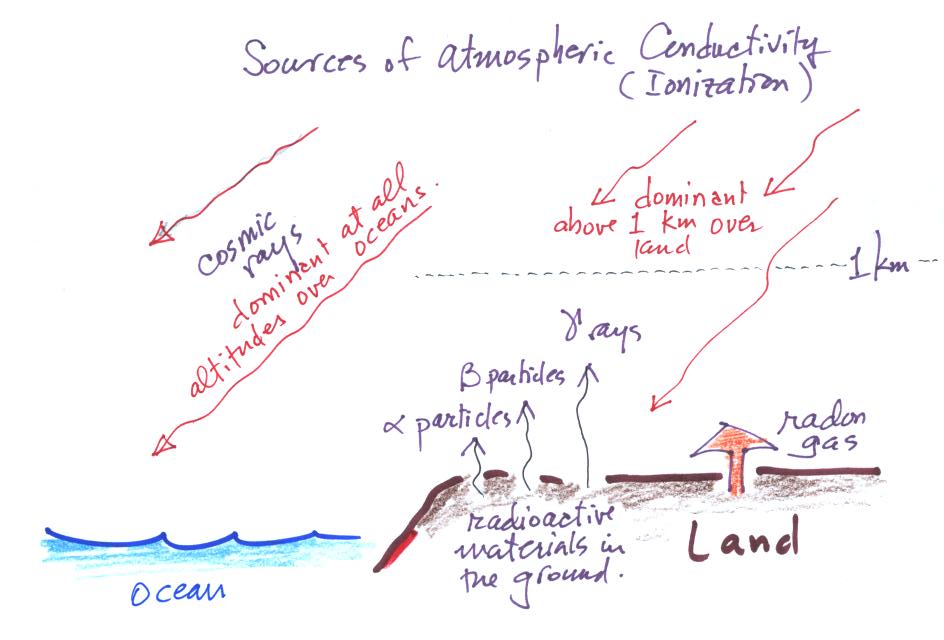 Sources of atmospheric Conductivity
(Ionization)
cosmic
rays
dominant at all
altitudes over oceans.
dominant
above 1 km over
land
1 km
γ rays
β particles
α particles
radon
gas
radioactive
materials in
the ground.
Land
Ocean